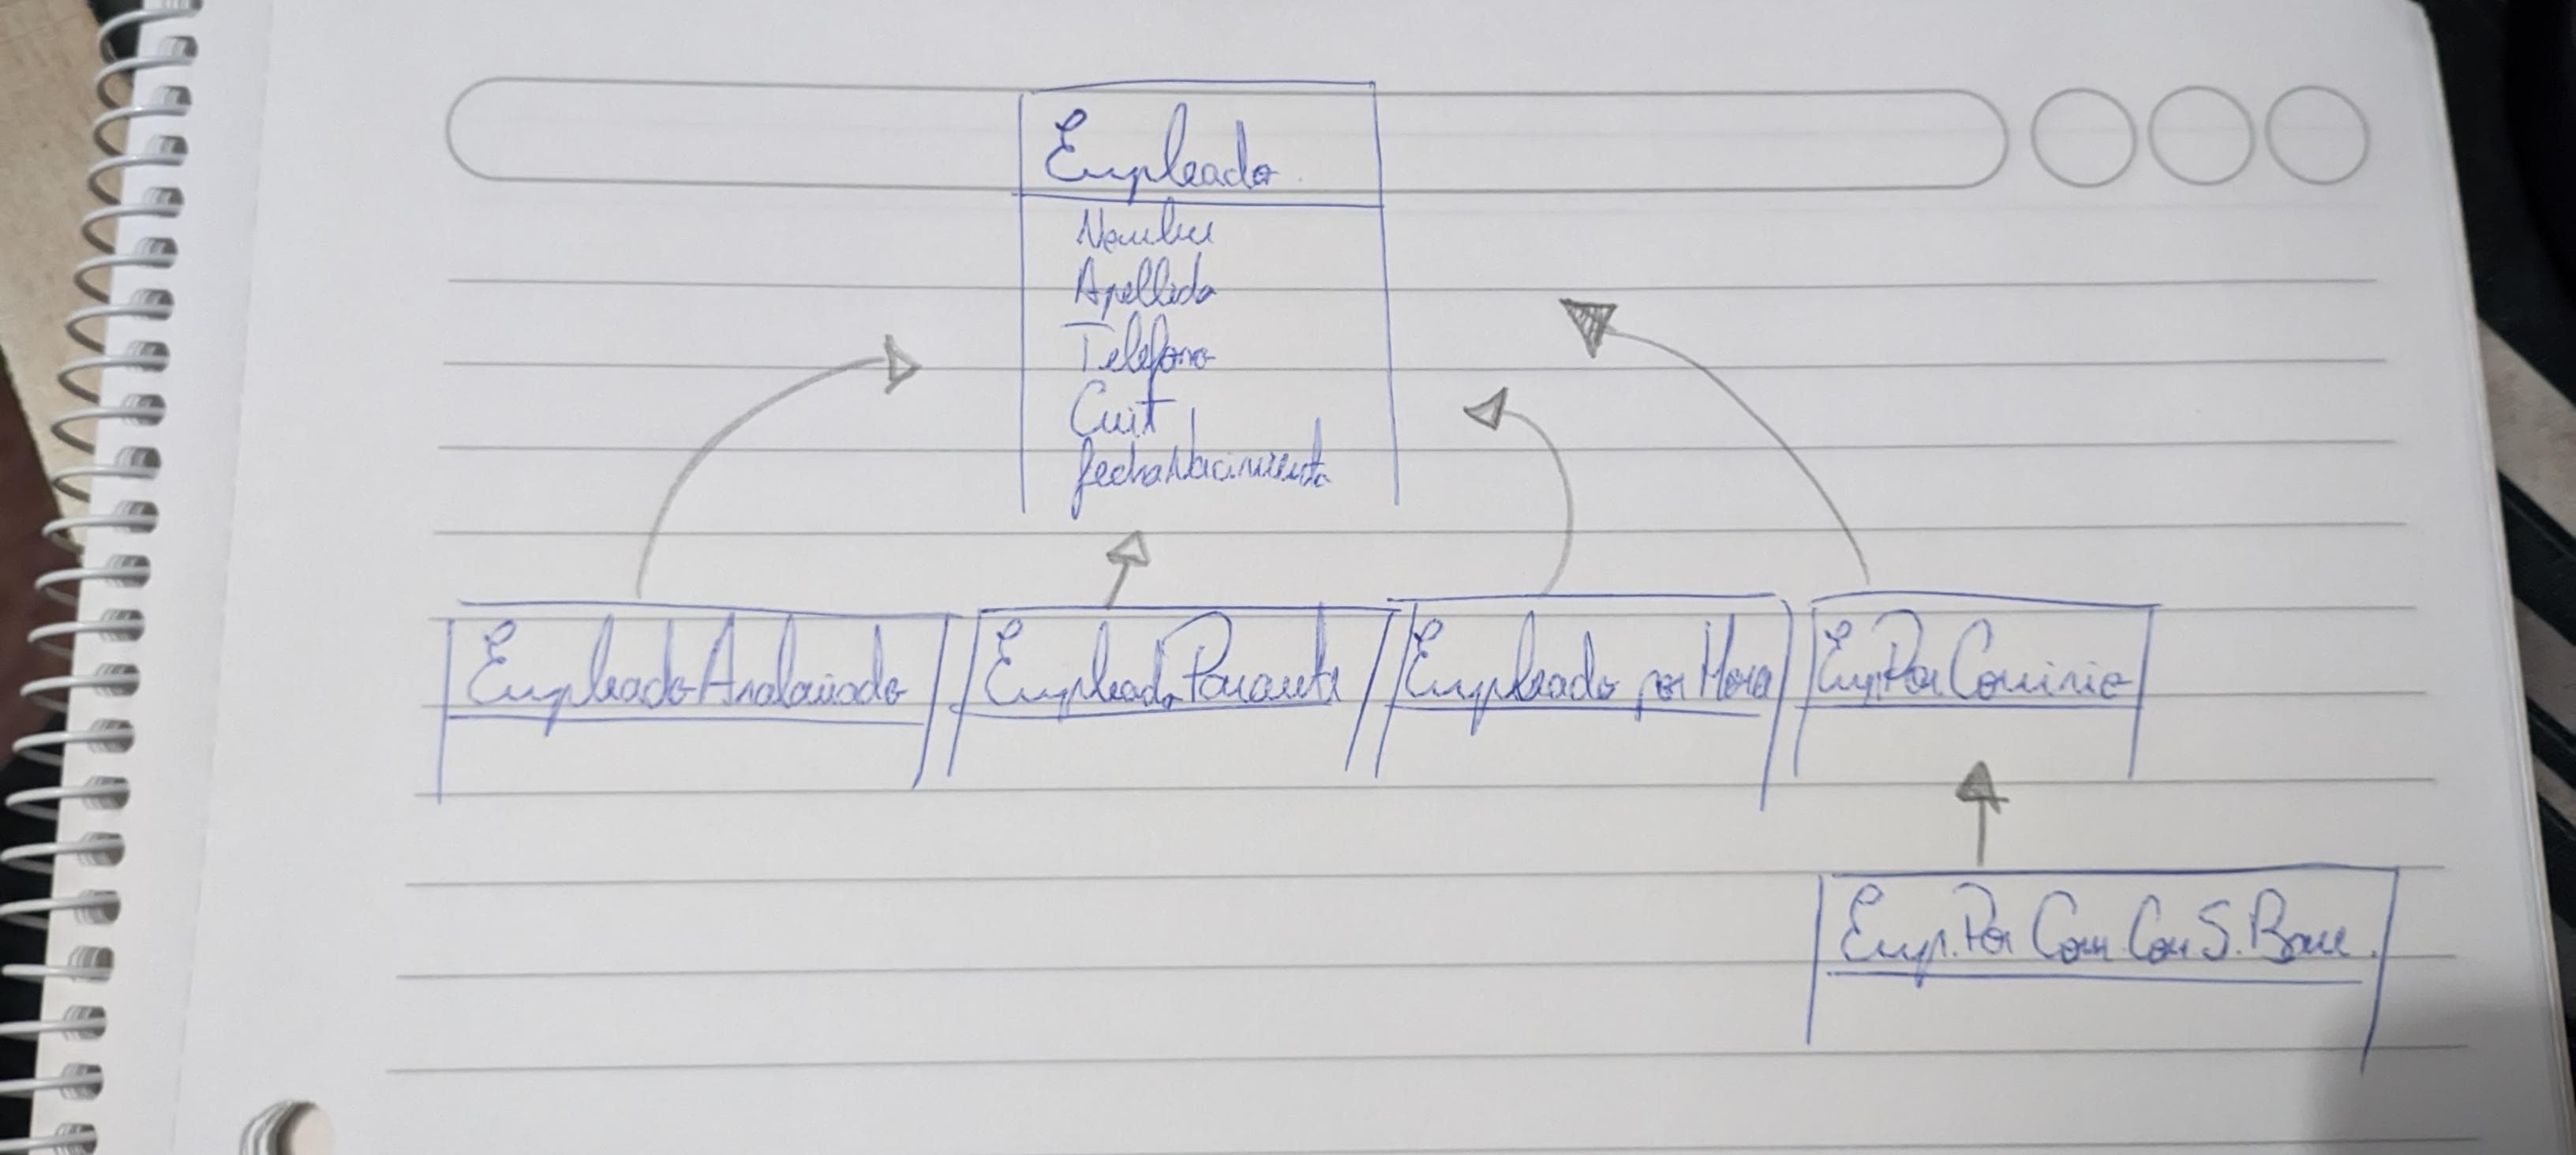 Empleado
Nombre
Apellido
Telefono
Cuit
fechaNacimiento
Empleado Asalariado
Empleado Pasante
Empleado por Hora
Emp Por Comisio
Emp. Por Com Con S. Base.